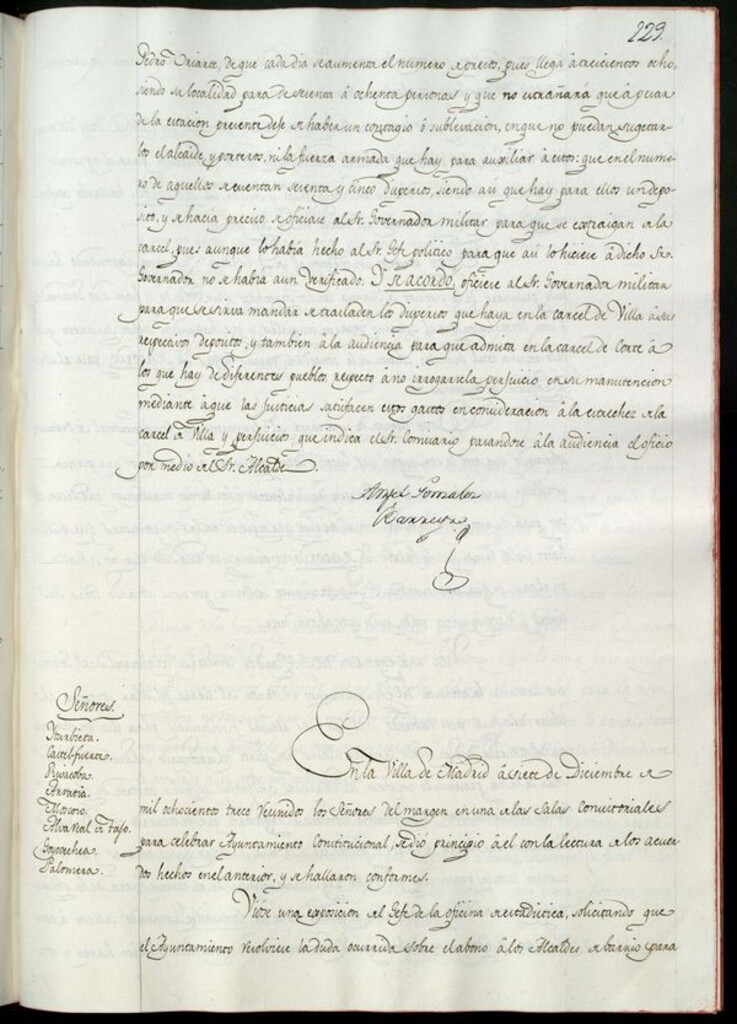 229.
Pedro Uriarte, de que cada dia se aumenta el numero de presos, pues llega à trescientos ocho,
siendo su localidad para de setenta à ochenta personas y que no extrañará que à pesar
de la estacion presente deje de haber un contagio ò sublevacion, en que no puedan sugetar-
los el alcaide, y porteros, ni la fuerza armada que hay para auxiliar à estos: que en el nume-
ro de aquellos se cuentan setenta y cinco dispersos, siendo asi que hay para ellos un depo-
sito, y se hacia preciso se oficiase al Sr. Governador militar para que se extraigan de la
carcel, pues aunque lo había hecho al Sr. Gefe politico para que asi lo hiciese à dicho Sr.
Governador no se habia aun verificado. Y se acordó, oficiese al Sr. Governador militar
para que se sirva mandar se trasladen los dispersos que haya en la carcel de Villa à sus
respectivos depositos, y tambien à la audiencia para que admita en la carcel de Corte à
los que hay de diferentes pueblos, respecto à no irrogarsela perjuicio en su manutencion
mediante à que las Justicias satisfacen estos gastos en consideracion à la estrechez de la
carcel de Villa y perjuicios que indica el Sr. Comisario pasandose à la audiencia el oficio
por medio del Sr. Alcalde.
Angel Gonzalez
Barreyro
Señores.
Yturbieta.
Castel-fuerte.
Rejacoba.
Arratia.
Moscoso.
Alvareal de Tajo.
Goycochea.
Palomera.
En la Villa de Madrid à siete de Diciembre de
mil ochocientos trece reunidos los Señores del margen en una de las Salas Consistoriales
para celebrar Ayuntamiento Constitucional, se dió principio à el con la lectura de los acuer-
dos hechos en el anterior, y se hallaron conformes.
Viose una exposicion del Gefe de la oficina de estadistica, solicitando que
el Ayuntamiento resolviese la duda ocurrida sobre el abono à los Alcaldes de barrio para